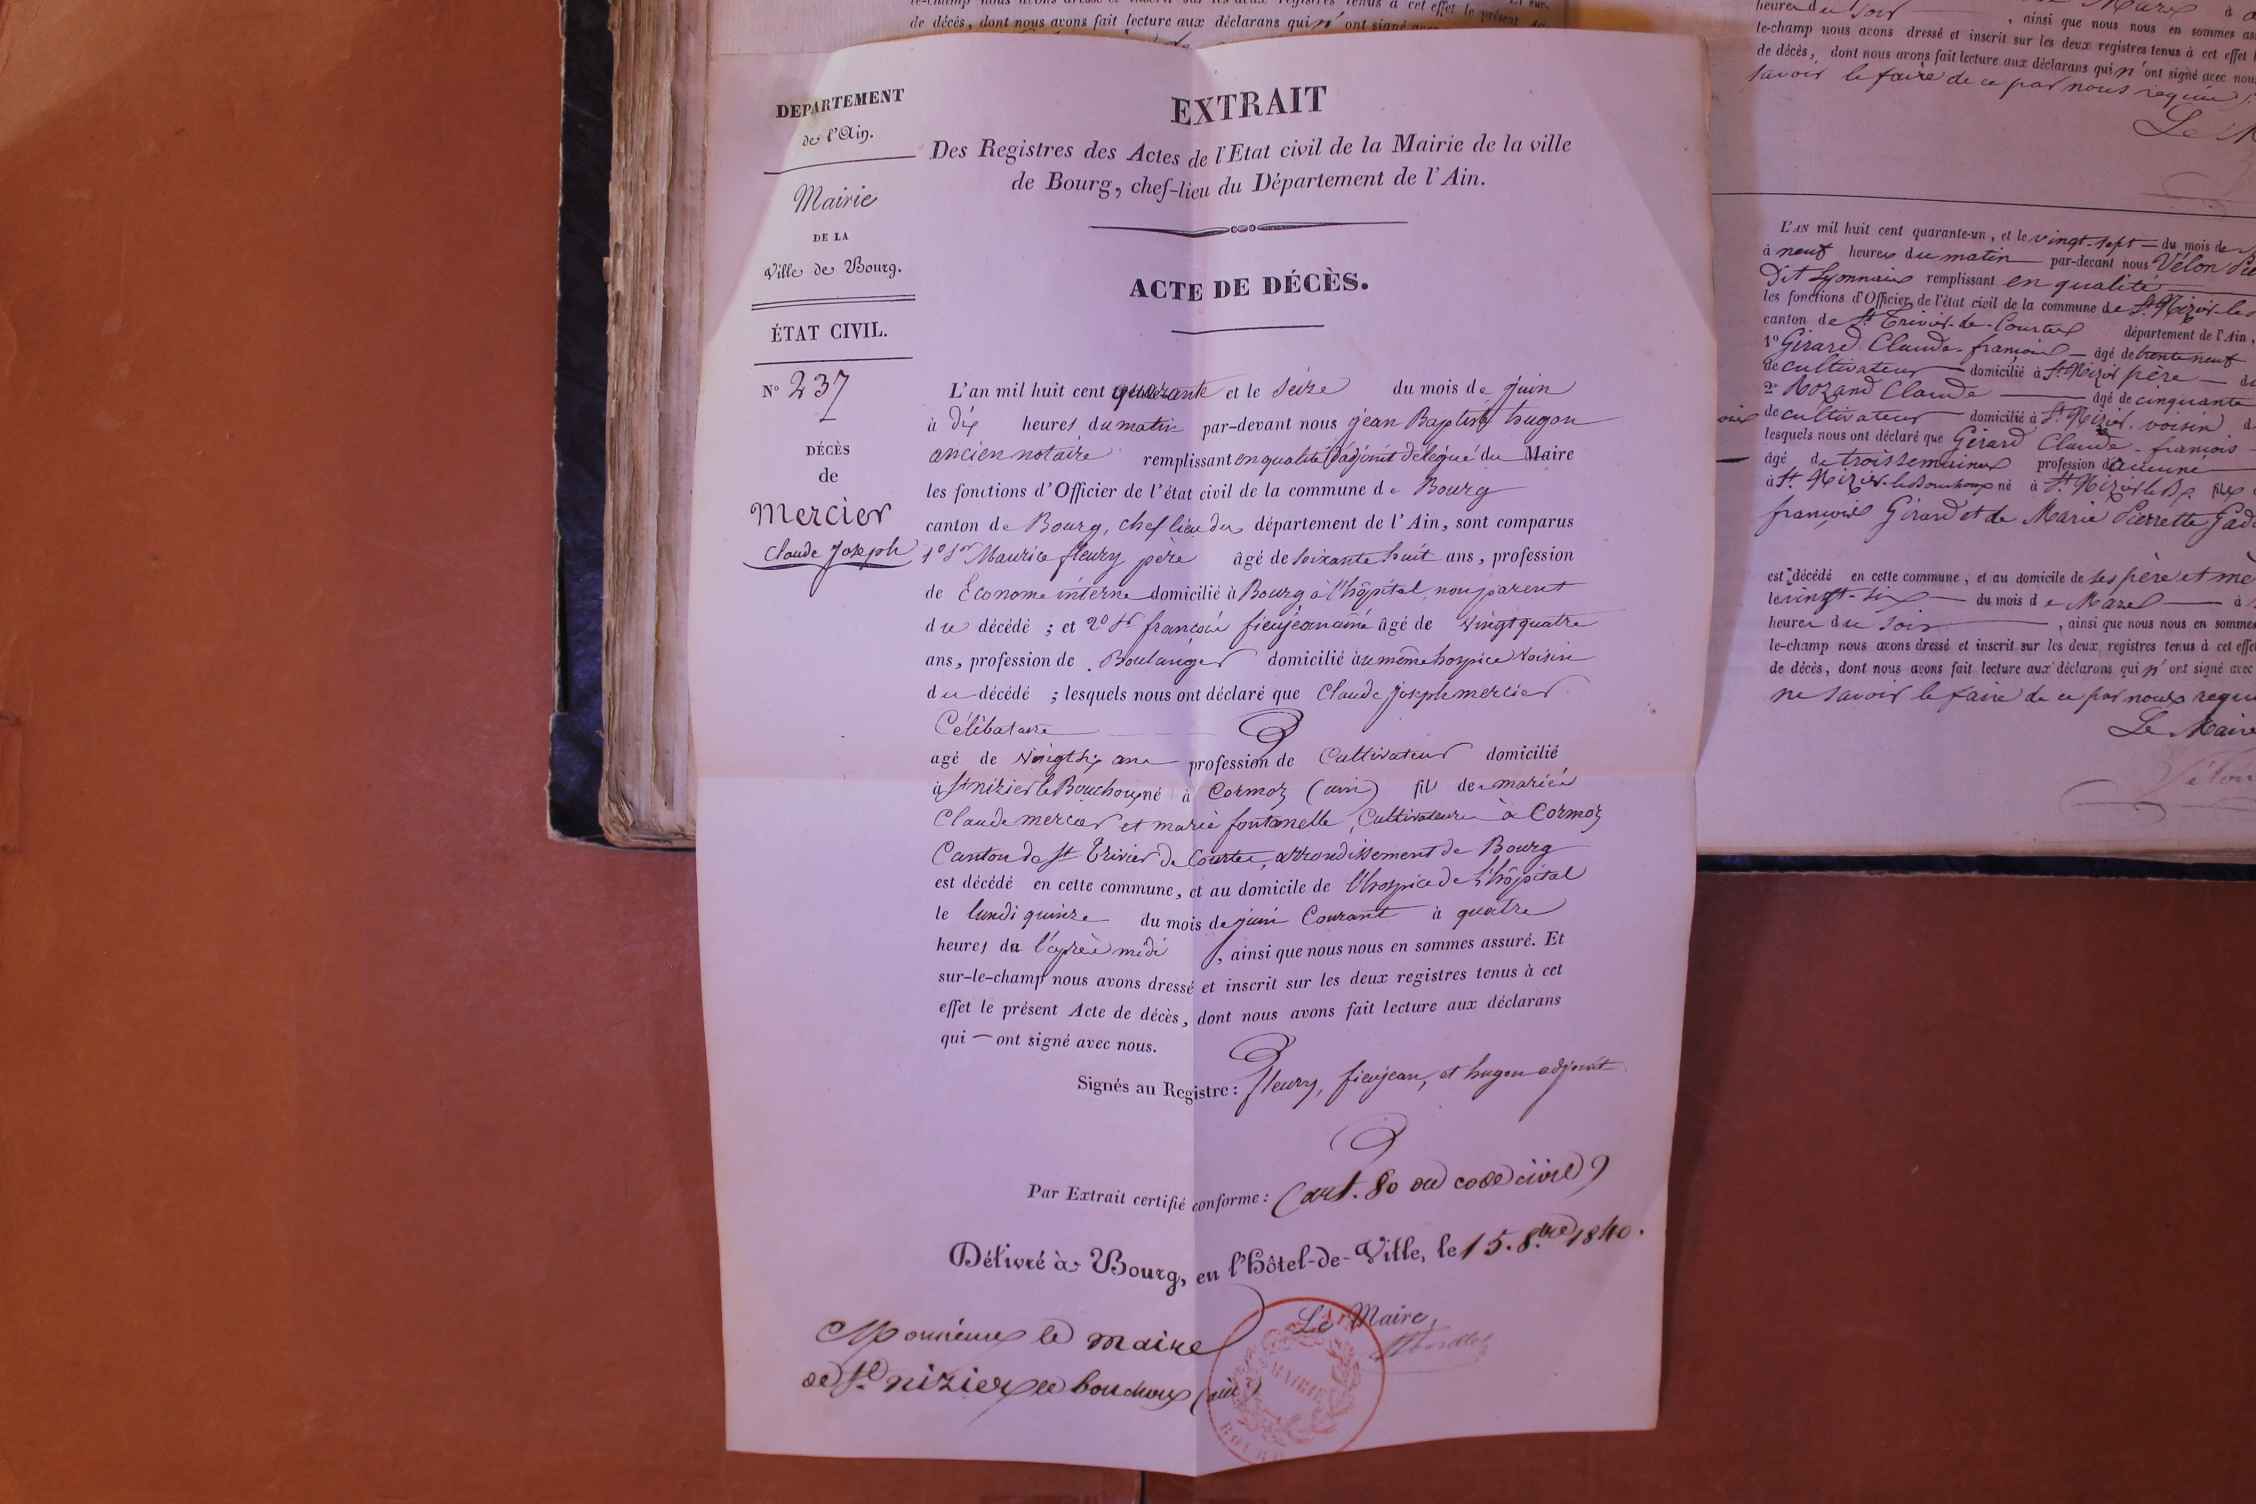 de décès, dont nous avons fait lecture aux déclarans qui n'ont signé
DEPARTEMENT
de l'Ain.
Mairie
DE LA
Ville de Bourg.
ÉTAT CIVIL.
N° 237
DÉCÈS
de
Mercier
Claude Joseph
EXTRAIT
Des Registres des Actes de l'Etat civil de la Mairie de la ville
de Bourg, chef-lieu du Département de l'Ain.
ACTE DE DÉCÈS.
L'an mil huit cent quarante et le seize du mois de juin
à dix heures du matin par-devant nous jean Baptiste hugon
ancien notaire remplissant en qualité d'adjoint délégué du Maire
les fonctions d'Officier de l'état civil de la commune de Bourg
canton de Bourg, chef lieu du département de l'Ain, sont comparus
1° Sr Maurice fleury père âgé de soixante huit ans, profession
de Econome interne domicilié à Bourg à l'hôpital, non parent
du décédé ; et 2° Sr françois fieujean ainé âgé de vingt quatre
ans, profession de Boulanger domicilié au même hospice voisin
du décédé ; lesquels nous ont déclaré que Claude joseph mercier
Célibataire
agé de vingt six ans profession de Cultivateur domicilié
à St nizier le Bouchoux né à Cormoz (ain) fils de mariés
Claude mercier et marie fontanelle, Cultivateurs à Cormoz
Canton de St Trivier de Courtes, arrondissement de Bourg
est décédé en cette commune, et au domicile de l'hospice de l'hôpital
le lundi quinze du mois de juin Courant à quatre
heures de l'après midi, ainsi que nous nous en sommes assuré. Et
sur-le-champ nous avons dressé et inscrit sur les deux registres tenus à cet
effet le présent Acte de décès, dont nous avons fait lecture aux déclarans
qui — ont signé avec nous.
Signés au Registre : fleury, fieujean, et hugon adjoint
Par Extrait certifié conforme : (art. 80 du code civil)
Délivré à Bourg, en l'Hôtel-de-Ville, le 15. 8.bre 1840.
Le Maire,
Monsieur le maire
de St nizier le bouchoux (ain)
AIN
MAIRIE
BOURG
heures du soir, ainsi que nous nous en sommes
le-champ nous avons dressé et inscrit sur les deux registres tenus à cet effet
de décès, dont nous avons fait lecture aux déclarans qui n'ont signé avec nous
savoir le faire de ce par nous requis
L'AN mil huit cent quarante-un, et le vingt-sept du mois de
à neuf heures du matin par-devant nous Vélon
dit Lymnais remplissant en qualité
les fonctions d'Officier de l'état civil de la commune de St Nizier-le
canton de St Trivier-de-Courtes département de l'Ain,
1° Girard Claude-françois âgé de trente neuf
de cultivateur domicilié à St Nizier père
2° Rozand Claude âgé de cinquante
de cultivateur domicilié à St Nizier, voisin
lesquels nous ont déclaré que Girard Claude-françois
âgé de trois semaines profession d'aucune
à St Nizier-le-Bouchoux né à St Nizier le B. fils
françois Girard et de Marie Pierrette
est décédé en cette commune, et au domicile de ses père et
le vingt-six du mois de Mars à
heures du soir, ainsi que nous nous en sommes
le-champ nous avons dressé et inscrit sur les deux registres tenus à cet
de décès, dont nous avons fait lecture aux déclarans qui n'ont signé avec
ne savoir le faire de ce par nous
Le Maire